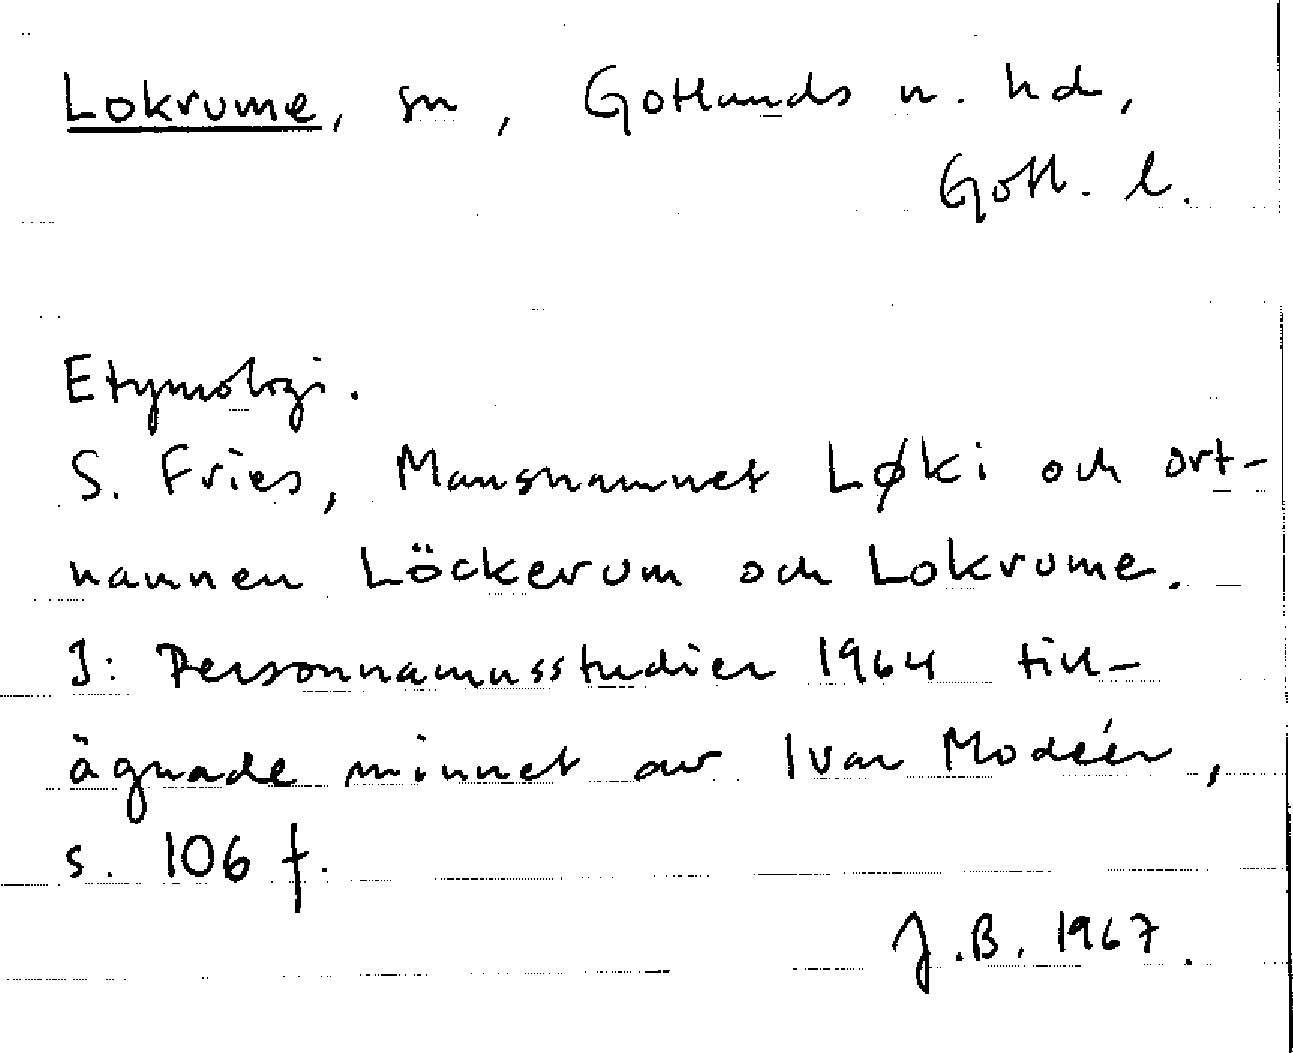 Lokrume, sn, Gotlands n. hd,
Gotl. l.
Etymologi.
S. Fries, Mansnamnet Løki och ort-
namnen Löckerum och Lokrume.
I: Personnamnsstudier 1964 till-
ägnade minnet av Ivar Modéer,
s. 106 f.
J.B. 1967.